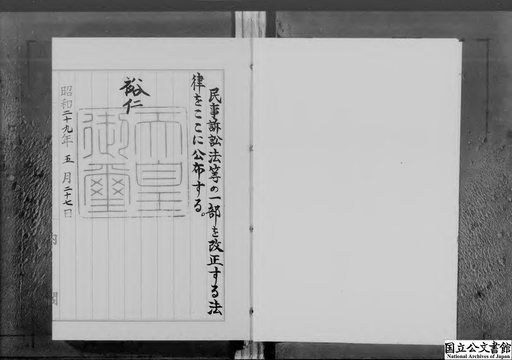 民事訴訟法等の一部を改正する法
律をここに公布する。
裕仁
天皇
御璽
昭和二十九年五月二十七日
内閣
国立公文書館
National Archives of Japan